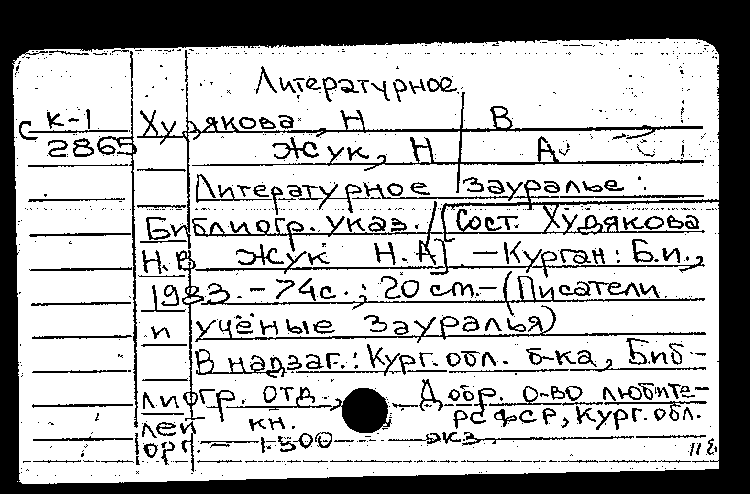 Литературное
с К-1 Худякова, Н В
2865 Жук, Н А
Литературное Зауралье:
Библиогр. указ. / [Сост. Худякова
Н.В Жук Н.А] – Курган: Б.и.,
1983. – 74с.; 20 cm. – (Писатели
и учёные Зауралья)
В надзаг.: Кург. обл. б-ка, Биб-
лиогр. отд., Добр. о-во любите-
лей кн. РСФСР, Кург. обл.
орг. – 1500 экз.